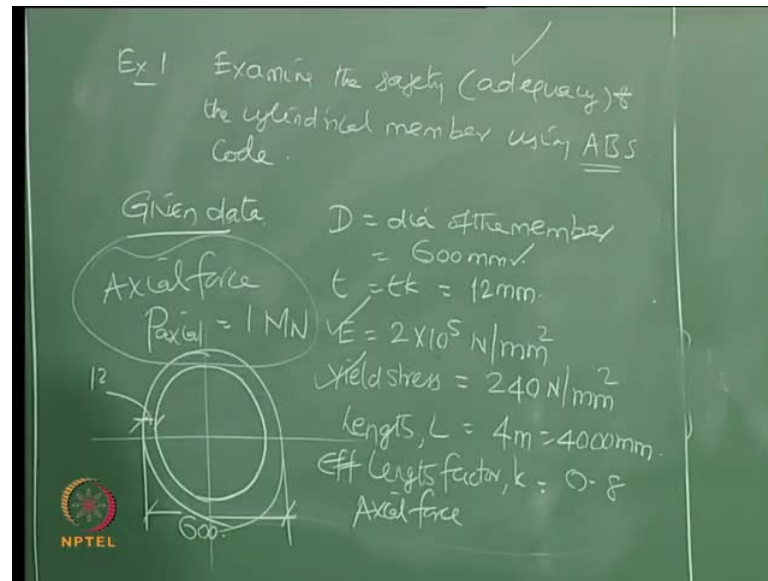 Ex 1 Examine the safety (adequacy) of
the cylindrical member using ABS
Code.
Given data
Axial force
Paxial = 1 MN
D = dia of the member
= 600 mm
t = tk = 12mm.
E = 2×10⁵ N/mm²
yield stress = 240 N/mm²
Length, L = 4m = 4000mm.
Eff Length factor, k = 0.8
Axial force
12
600
NPTEL